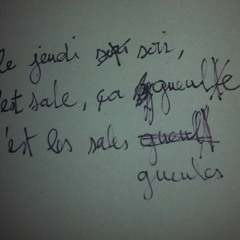 le jeudi soir,
est sale, ça gueule
c'est les sales
gueules